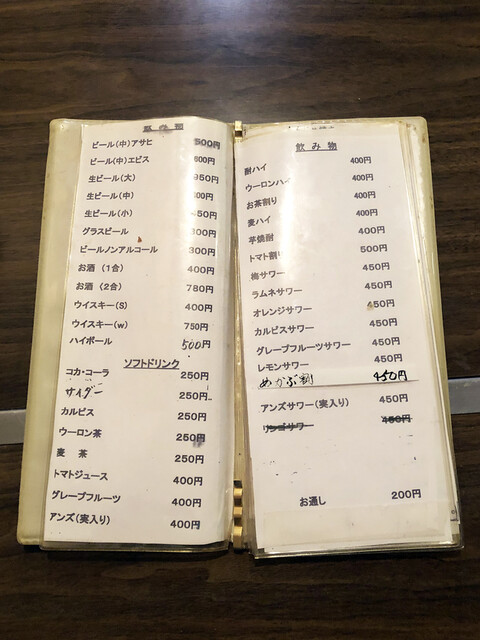 ビール(中)アサヒ 500円
ビール(中)エビス 600円
生ビール(大) 950円
生ビール(中)
生ビール(小)
グラスビール 300円
ビールノンアルコール 300円
お酒 (1合) 400円
お酒 (2合) 780円
ウイスキー(S) 400円
ウイスキー(w) 750円
ハイボール 500円
ソフトドリンク
コカ・コーラ 250円
サイダー 250円
カルピス 250円
ウーロン茶 250円
麦 茶 250円
トマトジュース 400円
グレープフルーツ 400円
アンズ(実入り) 400円
飲み物
酎ハイ 400円
ウーロンハイ 400円
お茶割り 400円
麦ハイ 400円
芋焼酎 400円
トマト割り 500円
梅サワー 450円
ラムネサワー 450円
オレンジサワー 450円
カルピスサワー 450円
グレープフルーツサワー 450円
レモンサワー 450円
めかぶ割 450円
アンズサワー(実入り) 450円
リンゴサワー 450円
お通し 200円